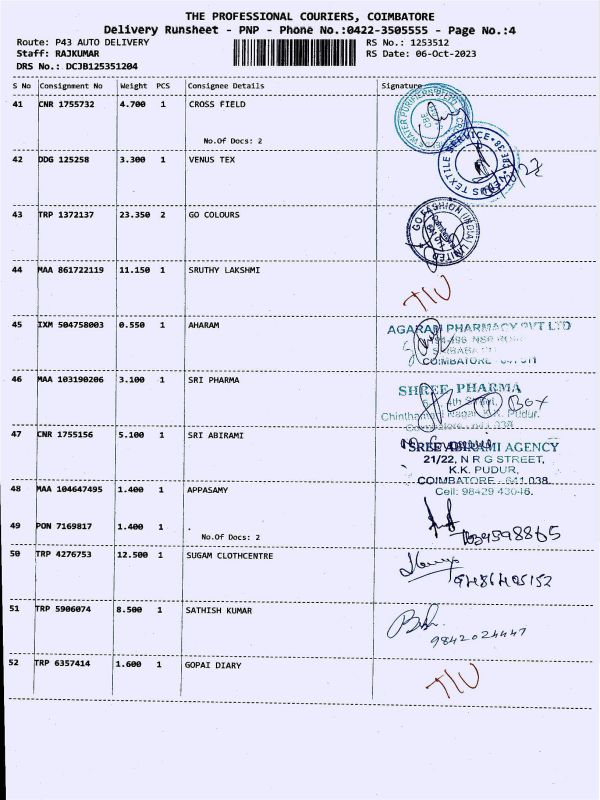 THE PROFESSIONAL COURIERS, COIMBATORE
Delivery Runsheet - PNP - Phone No.:0422-3505555 - Page No.:4
Route: P43 AUTO DELIVERY RS No.: 1253512
Staff: RAJKUMAR RS Date: 06-Oct-2023
DRS No.: DCJB125351204
S No Consignment No Weight PCS Consignee Details Signature
41 CNR 1755732 4.700 1 CROSS FIELD
No.Of Docs: 2
42 DDG 125258 3.300 1 VENUS TEX
TEXTILE SERVICE
43 TRP 1372137 23.350 2 GO COLOURS
GO FASHION (INDIA) LIMITED
44 MAA 861722119 11.150 1 SRUTHY LAKSHMI
TIU
45 IXM 504758003 0.550 1 AHARAM
AGARAM PHARMACY PVT LTD
COIMBATORE
46 MAA 103190206 3.100 1 SRI PHARMA
SHREE PHARMA
4th Street,
① Box
Nagar, K.K. Pudur,
47 CNR 1755156 5.100 1 SRI ABIRAMI
SREE ABIRAMI AGENCY
21/22, N R G STREET,
K.K. PUDUR,
COIMBATORE - 641 038.
Cell: 98429 43046.
48 MAA 104647495 1.400 1 APPASAMY
49 PON 7169817 1.400 1
No.Of Docs: 2
50 TRP 4276753 12.500 1 SUGAM CLOTHCENTRE
9486405152
51 TRP 5906074 8.500 1 SATHISH KUMAR
9842024447
52 TRP 6357414 1.600 1 GOPAI DIARY
TIU